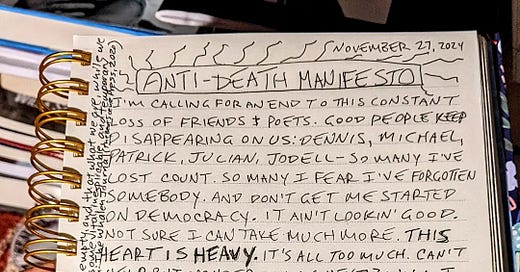 NOVEMBER 27, 2024
ANTI-DEATH MANIFESTO
I'M CALLING FOR AN END TO THIS CONSTANT
LOSS OF FRIENDS & POETS. GOOD PEOPLE KEEP
DISAPPEARING ON US: DENNIS, MICHAEL,
PATRICK, JULIAN, JODELL–SO MANY I'VE
LOST COUNT. SO MANY I FEAR I'VE FORGOTTEN
SOMEBODY. AND DON'T GET ME STARTED
ON DEMOCRACY. IT AIN'T LOOKIN' GOOD.
NOT SURE I CAN TAKE MUCH MORE. THIS
HEART IS HEAVY. IT'S ALL TOO MUCH. CAN'T
that what we give, while we